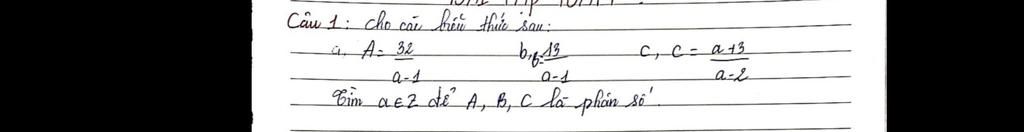 Câu 1: Cho các biểu thức sau:
a, A = 32/a-1 b, B = 13/a-1 c, C = a+3/a-2
Tìm a ∈ Z để A, B, C là phân số.